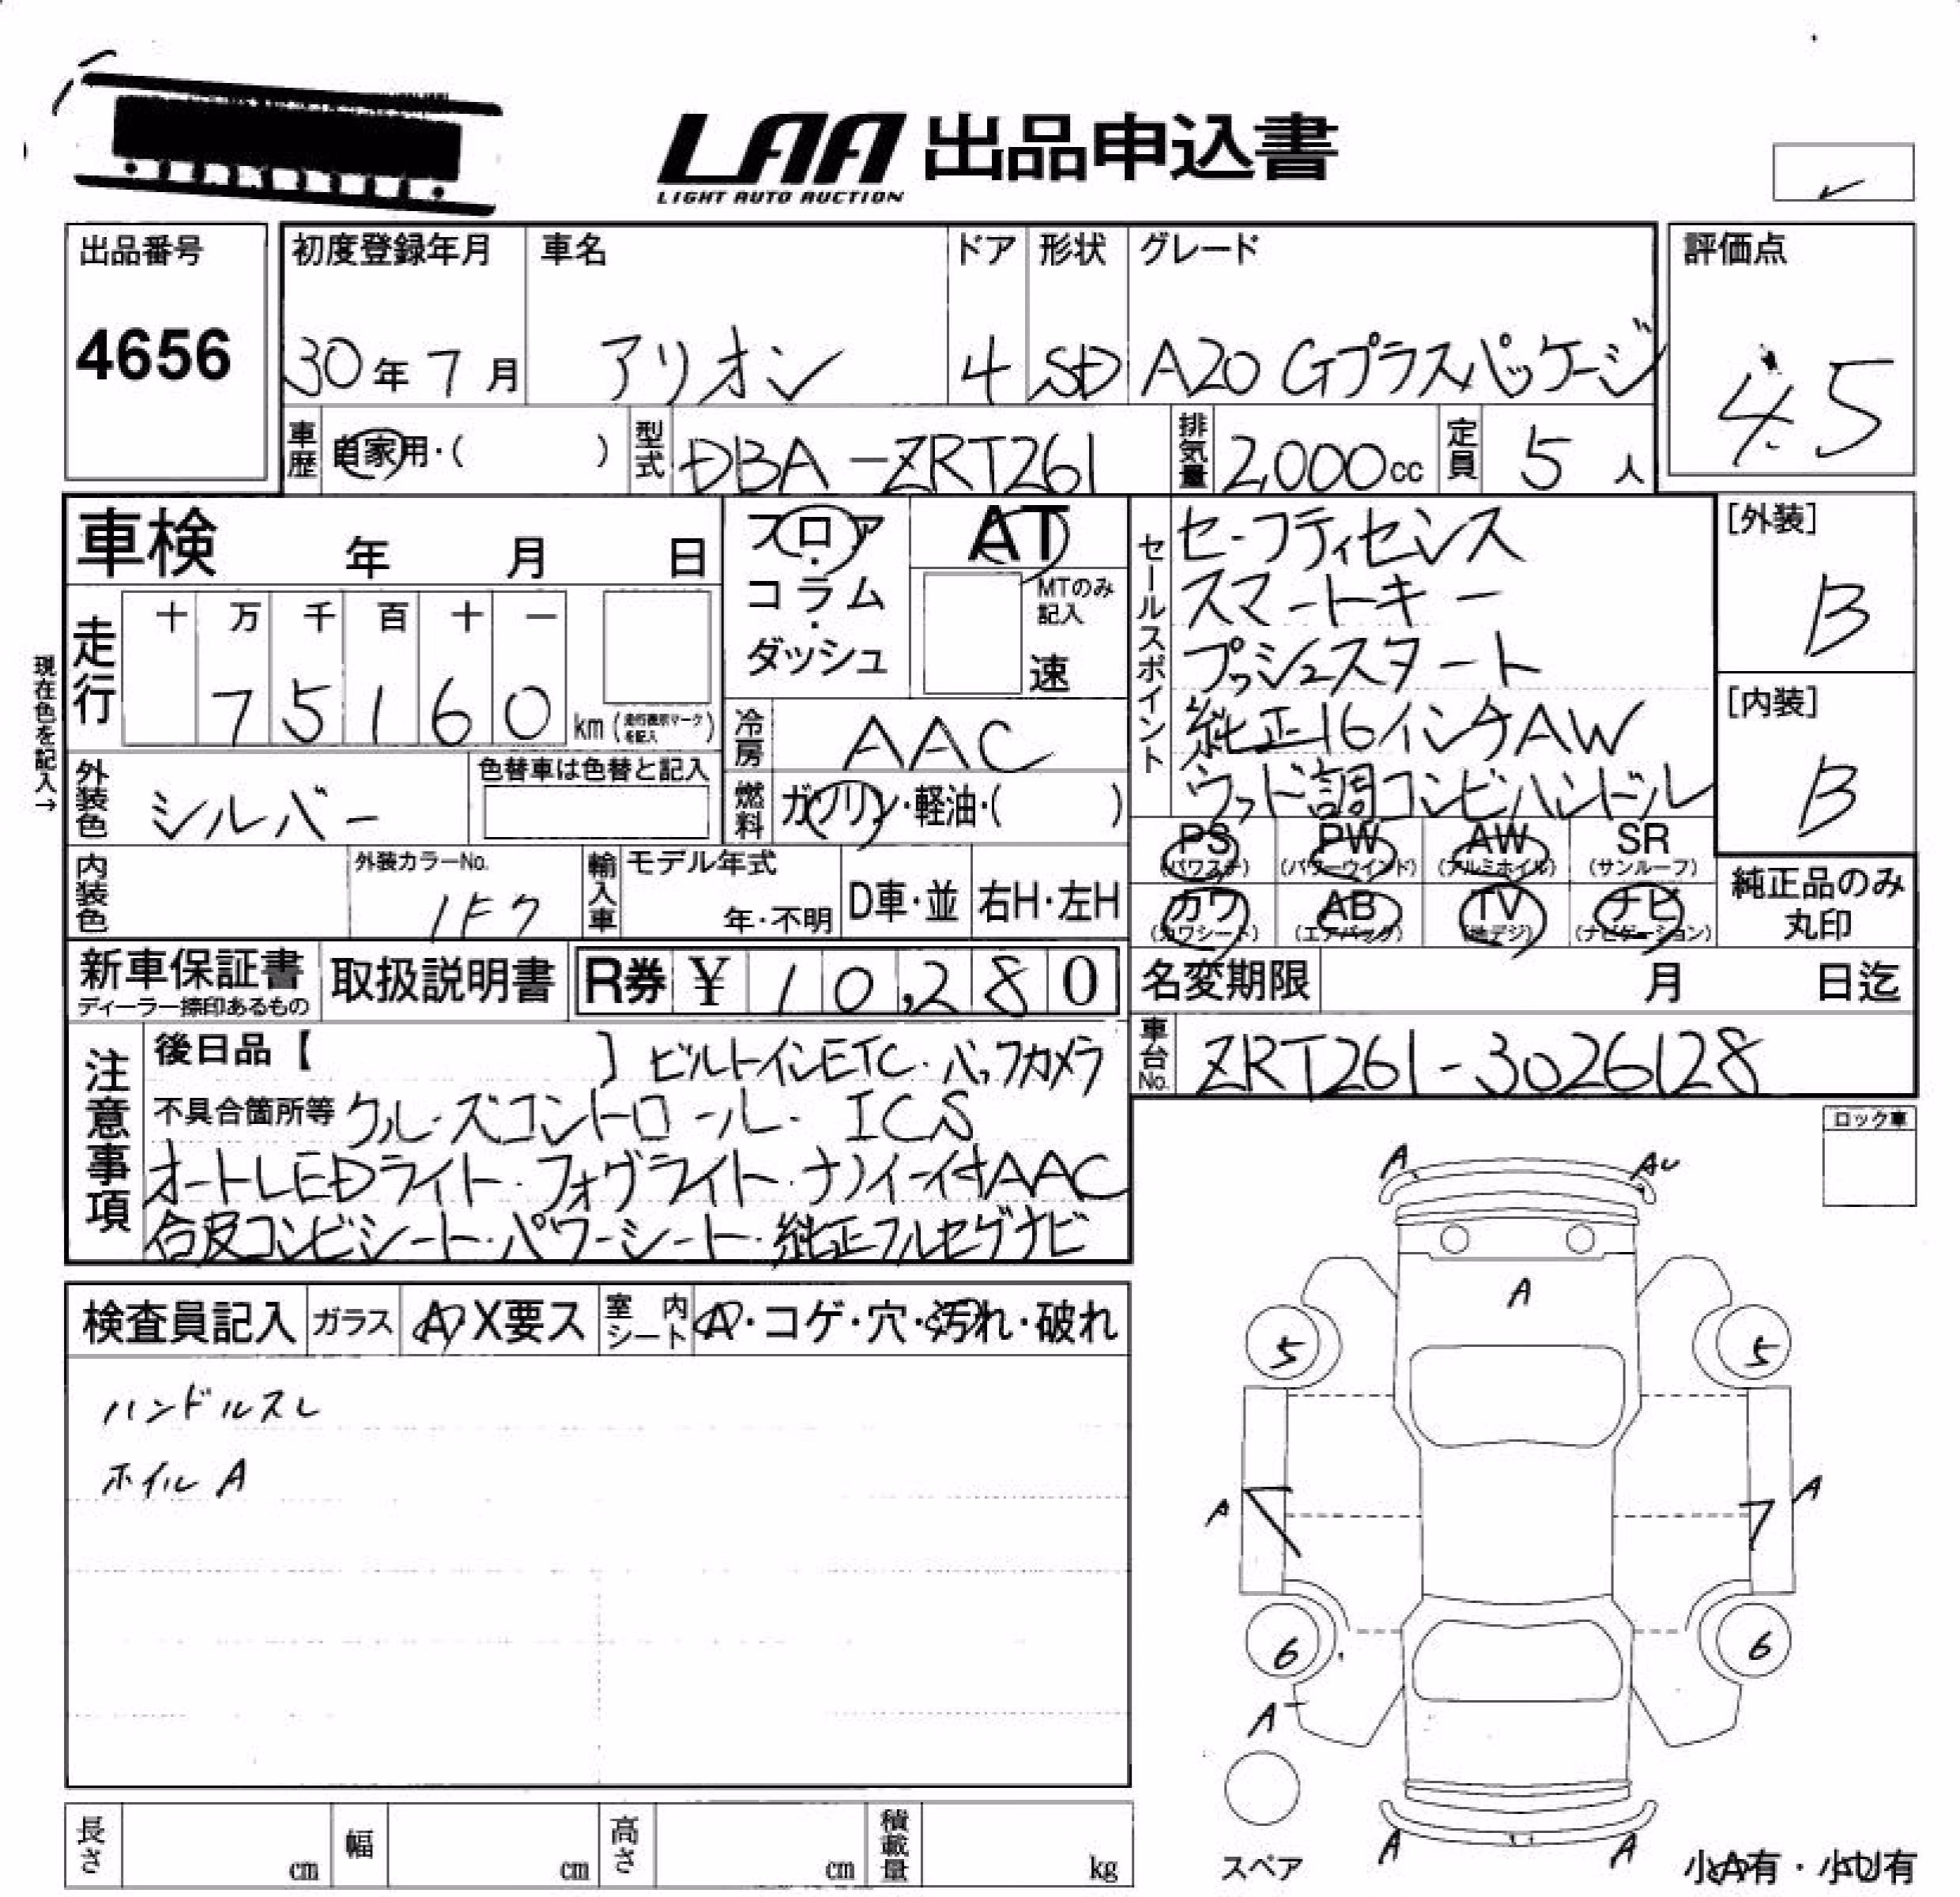 LAA 出品申込書
LIGHT AUTO AUCTION
出品番号
4656
初度登録年月
30年7月
車名
アリオン
ドア
4
形状
SD
グレード
A20 Gプラスパッケージ
評価点
4.5
車歴
自家用・( )
型式
DBA-ZRT261
排気量
2,000cc
定員
5人
車検 年 月 日
フロア・コラム・ダッシュ
AT
MTのみ記入
速
セールスポイント
セーフティセンス
スマートキー
プッシュスタート
純正16インチAW
ウッド調コンビハンドル
[外装]
B
[内装]
B
現在色を記入→
走行
十 万 千 百 十 一
7 5 1 6 0
km (走行機能マークを記入)
冷房
AAC
外装色
シルバー
色替車は色替と記入
燃料
ガソリン・軽油・( )
内装色
外装カラーNo.
1F7
輸入車
モデル年式
年・不明
D車・並
右H・左H
PS (パワステ)
PW (パワーウインド)
AW (アルミホイル)
SR (サンルーフ)
カワ (カワシート)
AB (エアバッグ)
TV (地デジ)
ナビ (ナビゲーション)
純正品のみ丸印
新車保証書
ディーラー捺印あるもの
取扱説明書
R券 ¥ 10,280
名変期限 月 日迄
車台No.
ZRT261-3026128
注意事項
後日品【 】ビルトインETC・バックカメラ
不具合箇所等 クルーズコントロール・ICS
オートLEDライト・フォグライト・ナノイー付AAC
合皮コンビシート・パワーシート・純正フルセグナビ
ロック車
検査員記入
ガラス
A X要ス
室内シート
A・コゲ・穴・汚れ・破れ
ハンドルスレ
ホイルA
A
AU
A
5
5
A
A
6
6
A
A
A
スペア
小A有・小U有
長さ cm
幅 cm
高さ cm
積載量 kg